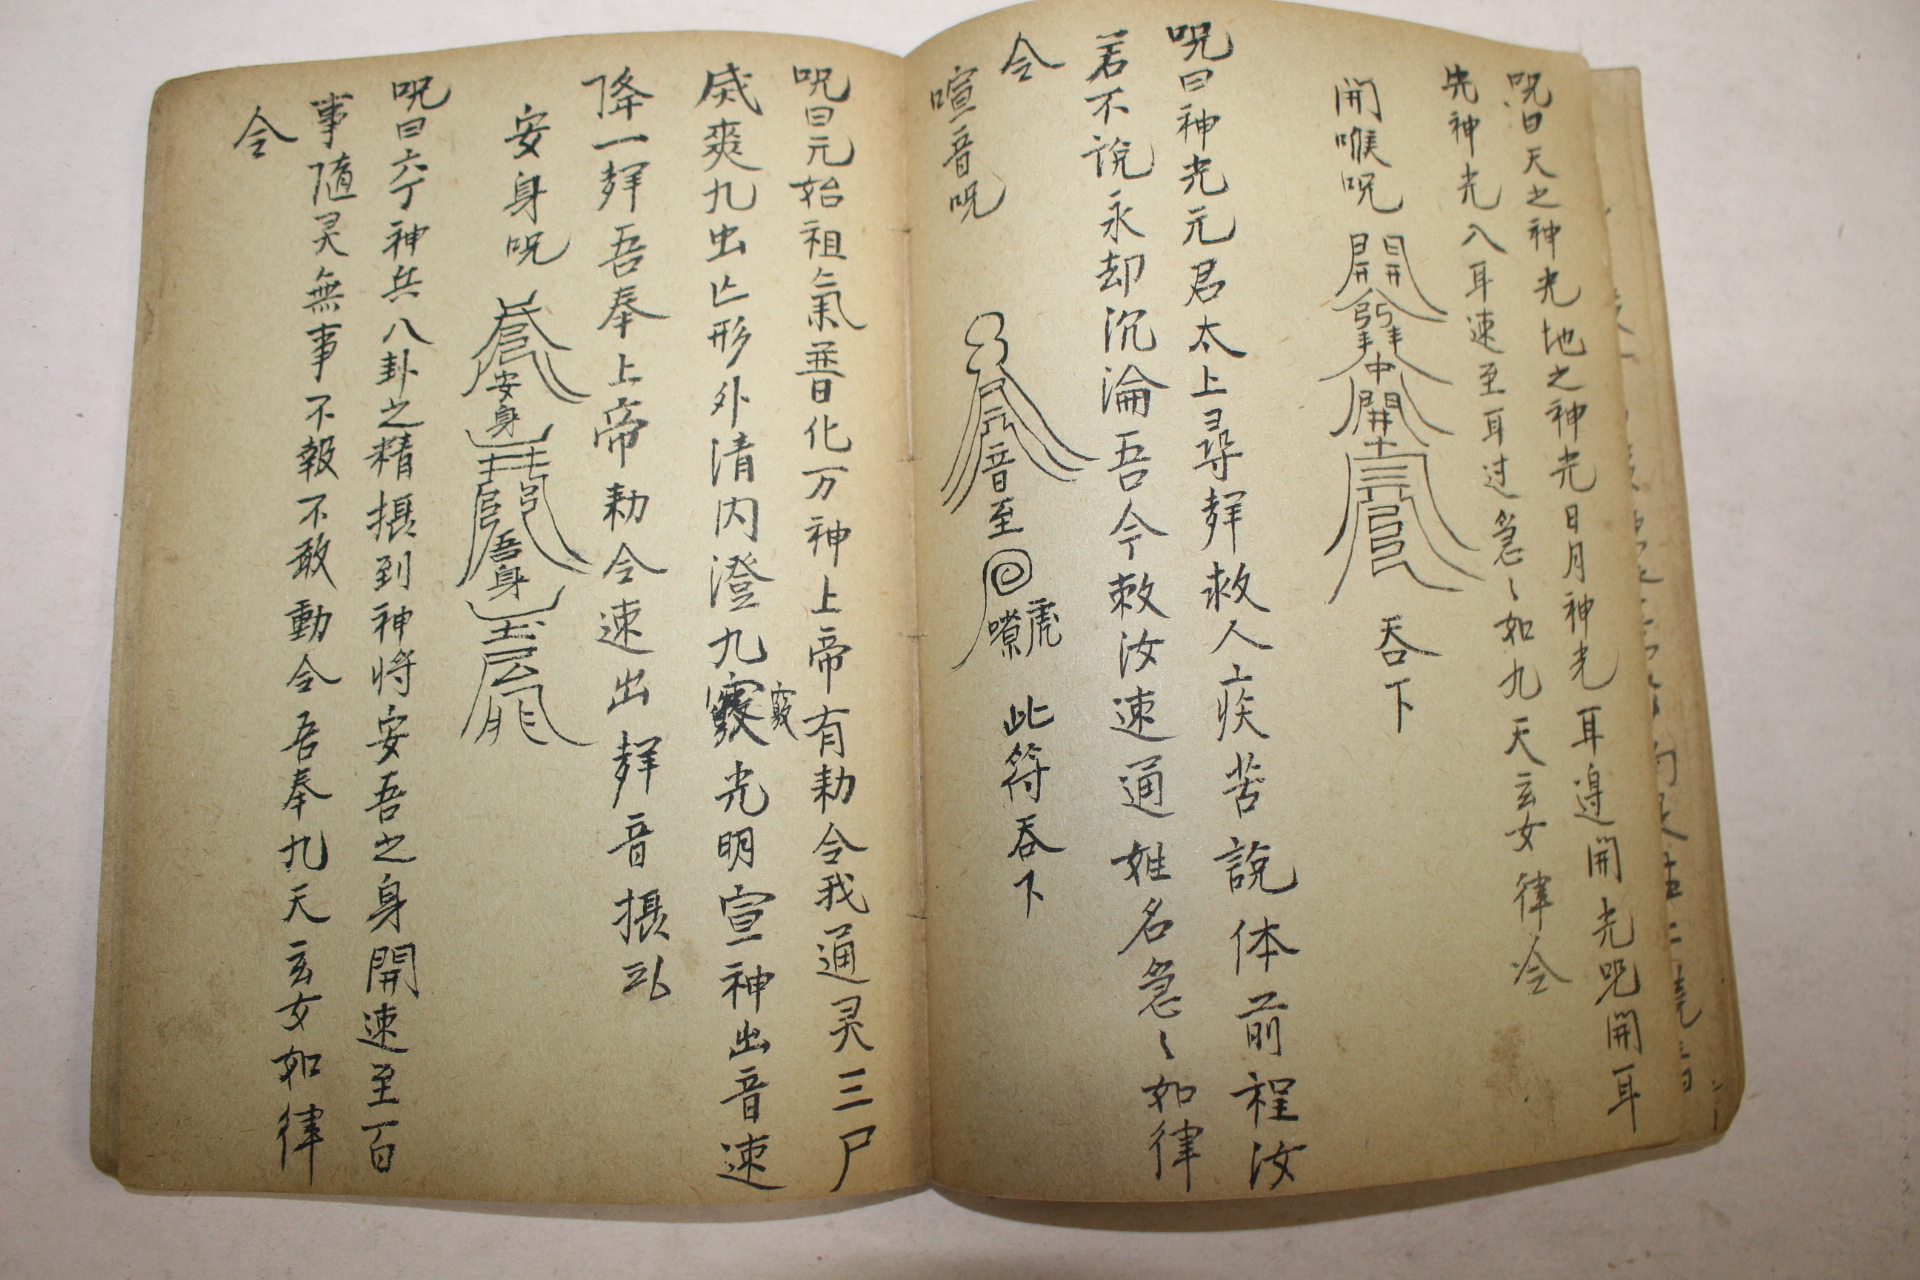 呪曰天之神光地之神光日月神光耳邉開光呪開耳
光神光入耳速至耳过急〻如九天玄女律令
開喉呪
開
中開
吞下
呪曰神光元君太上尋声救人疾苦說体前程汝
若不說永却沉淪吾今敕汝速通姓名急〻如律
令
喧音呪
音至
此符吞下
呪曰元始祖氣普化万神上帝有勅令我通灵三尸
爽九出亡形外清内澄九竅光明宣神出音速
竅
降一声吾奉上帝勅令速出声音摄
安身呪
安身
吾身
呪曰六丁神兵八卦之精摄到神将安吾之身開速至百
事随灵無事不報不敢動令吾奉九天玄女如律
令